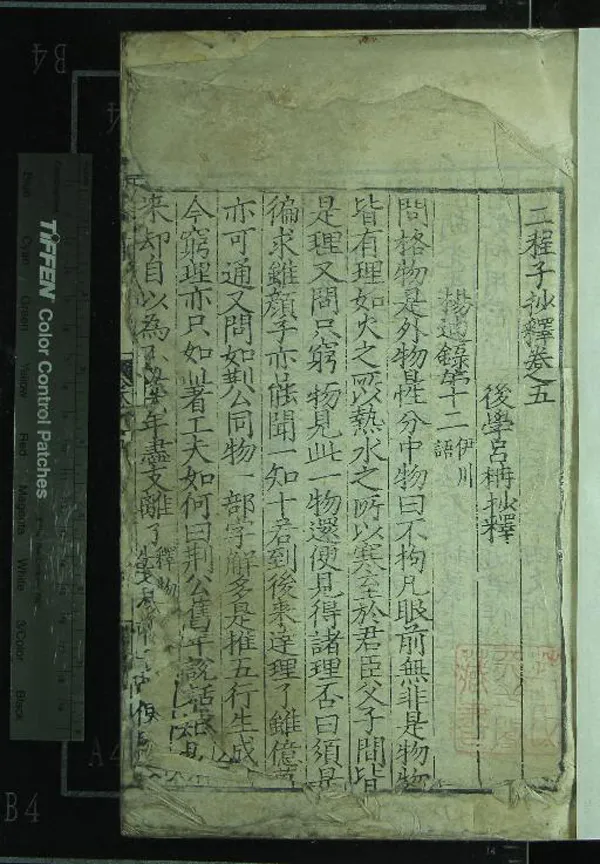 二程子抄釋卷之五
後學呂柟抄釋
楊遵錄第十二 伊川語
問格物是外物是性分中物曰不拘凡眼前無非是物物
皆有理如火之所以熱水之所以寒至於君臣父子間皆
是理又問只窮一物見此一物還便見得諸理否曰須是
徧求雖顏子亦能聞一知十若到後來達理了雖億萬
亦可通又問如荆公同物 部字解多是推五行生成
今窮理亦只如此著工夫如何曰荆公舊年說話
来却自以為 年盡支離了 釋物
TIFFEN Color Control Patches
Blue
Cyan
Green
Yellow
Red
Magenta
White
3/Color
Black
B4
B4
A4